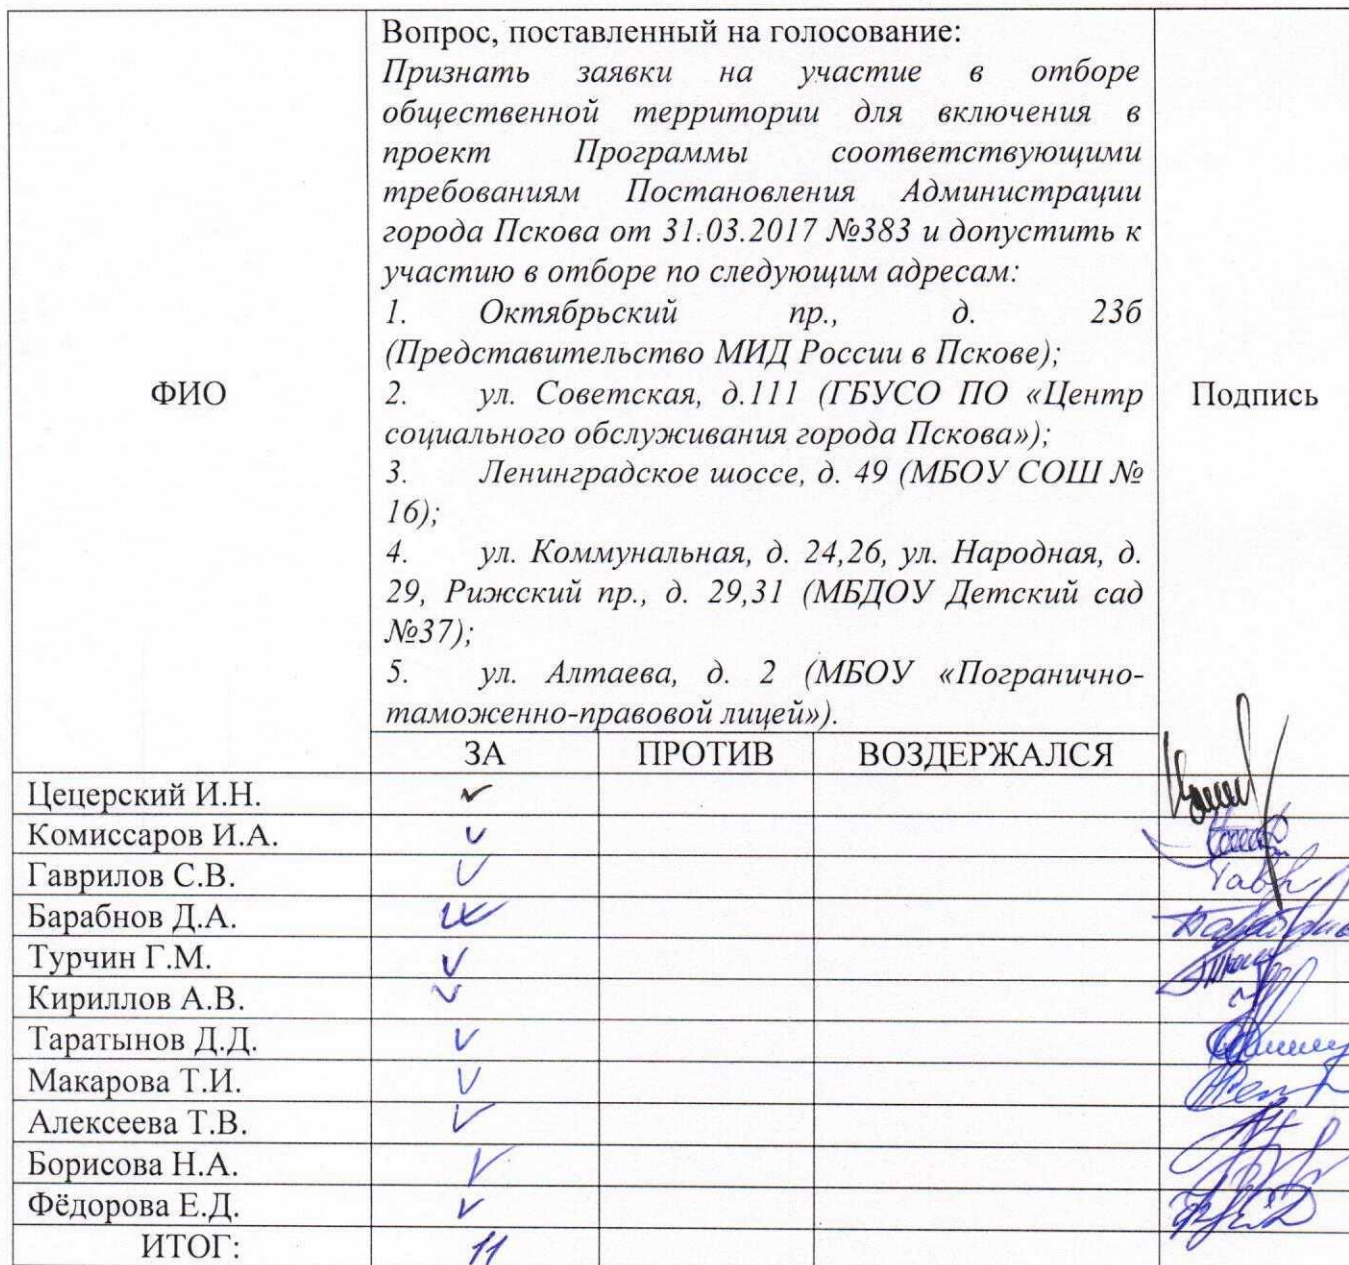 Вопрос, поставленный на голосование:
Признать заявки на участие в отборе
общественной территории для включения в
проект Программы соответствующими
требованиям Постановления Администрации
города Пскова от 31.03.2017 №383 и допустить к
участию в отборе по следующим адресам:
1. Октябрьский пр., д. 23б
(Представительство МИД России в Пскове);
ФИО
2. ул. Советская, д.111 (ГБУСО ПО «Центр
Подпись
социального обслуживания города Пскова»);
3. Ленинградское шоссе, д. 49 (МБОУ СОШ №
16);
4. ул. Коммунальная, д. 24,26, ул. Народная, д.
29, Рижский пр., д. 29,31 (МБДОУ Детский сад
№37);
5. ул. Алтаева, д. 2 (МБОУ «Погранично-
таможенно-правовой лицей»).
ЗА ПРОТИВ ВОЗДЕРЖАЛСЯ
Цецерский И.Н.
Комиссаров И.А.
Гаврилов С.В.
Барабнов Д.А.
Турчин Г.М.
Кириллов А.В.
Таратынов Д.Д.
Макарова Т.И.
Алексеева Т.В.
Борисова Н.А.
Фёдорова Е.Д.
ИТОГ: 11